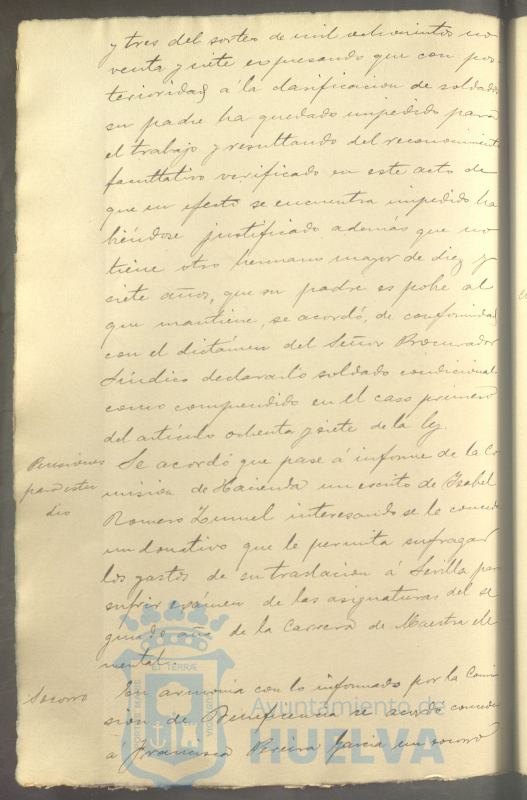 y tres del sorteo de mil ochocientos no
venta y siete expresando que con pos
terioridad á la clasificacion de soldados
su padre ha quedado impedido para
el trabajo y resultando del reconocimiento
facultativo verificado en este acto de
que en efecto se encuentra impedido ha
biéndose justificado además que no
tiene otro hermano mayor de diez y
siete años, que su padre es pobre al
que mantiene, se acordó, de conformidad
con el dictámen del Señor Procurador
Síndico declararlo soldado condicional
como comprendido en el caso primero
del artículo ochenta y siete de la ley.
Pensiones
para estu
dio
Se acordó que pase á informe de la Co
mision de Hacienda un escrito de Isabel
Romero interesando se le conceda
un donativo que le permita sufragar
los gastos de su traslacion á Sevilla para
sufrir exámen de las asignaturas del se
gundo año de la Carrera de Maestra ele
mental.
Socorro
En armonia con lo informado por la Comi
sion de Beneficencia se acordó conceder
á Francisca Pereira Garcia un socorro
PORTUS MARIS
ET TERRÆ
CUSTODIA
Ayuntamiento de
HUELVA